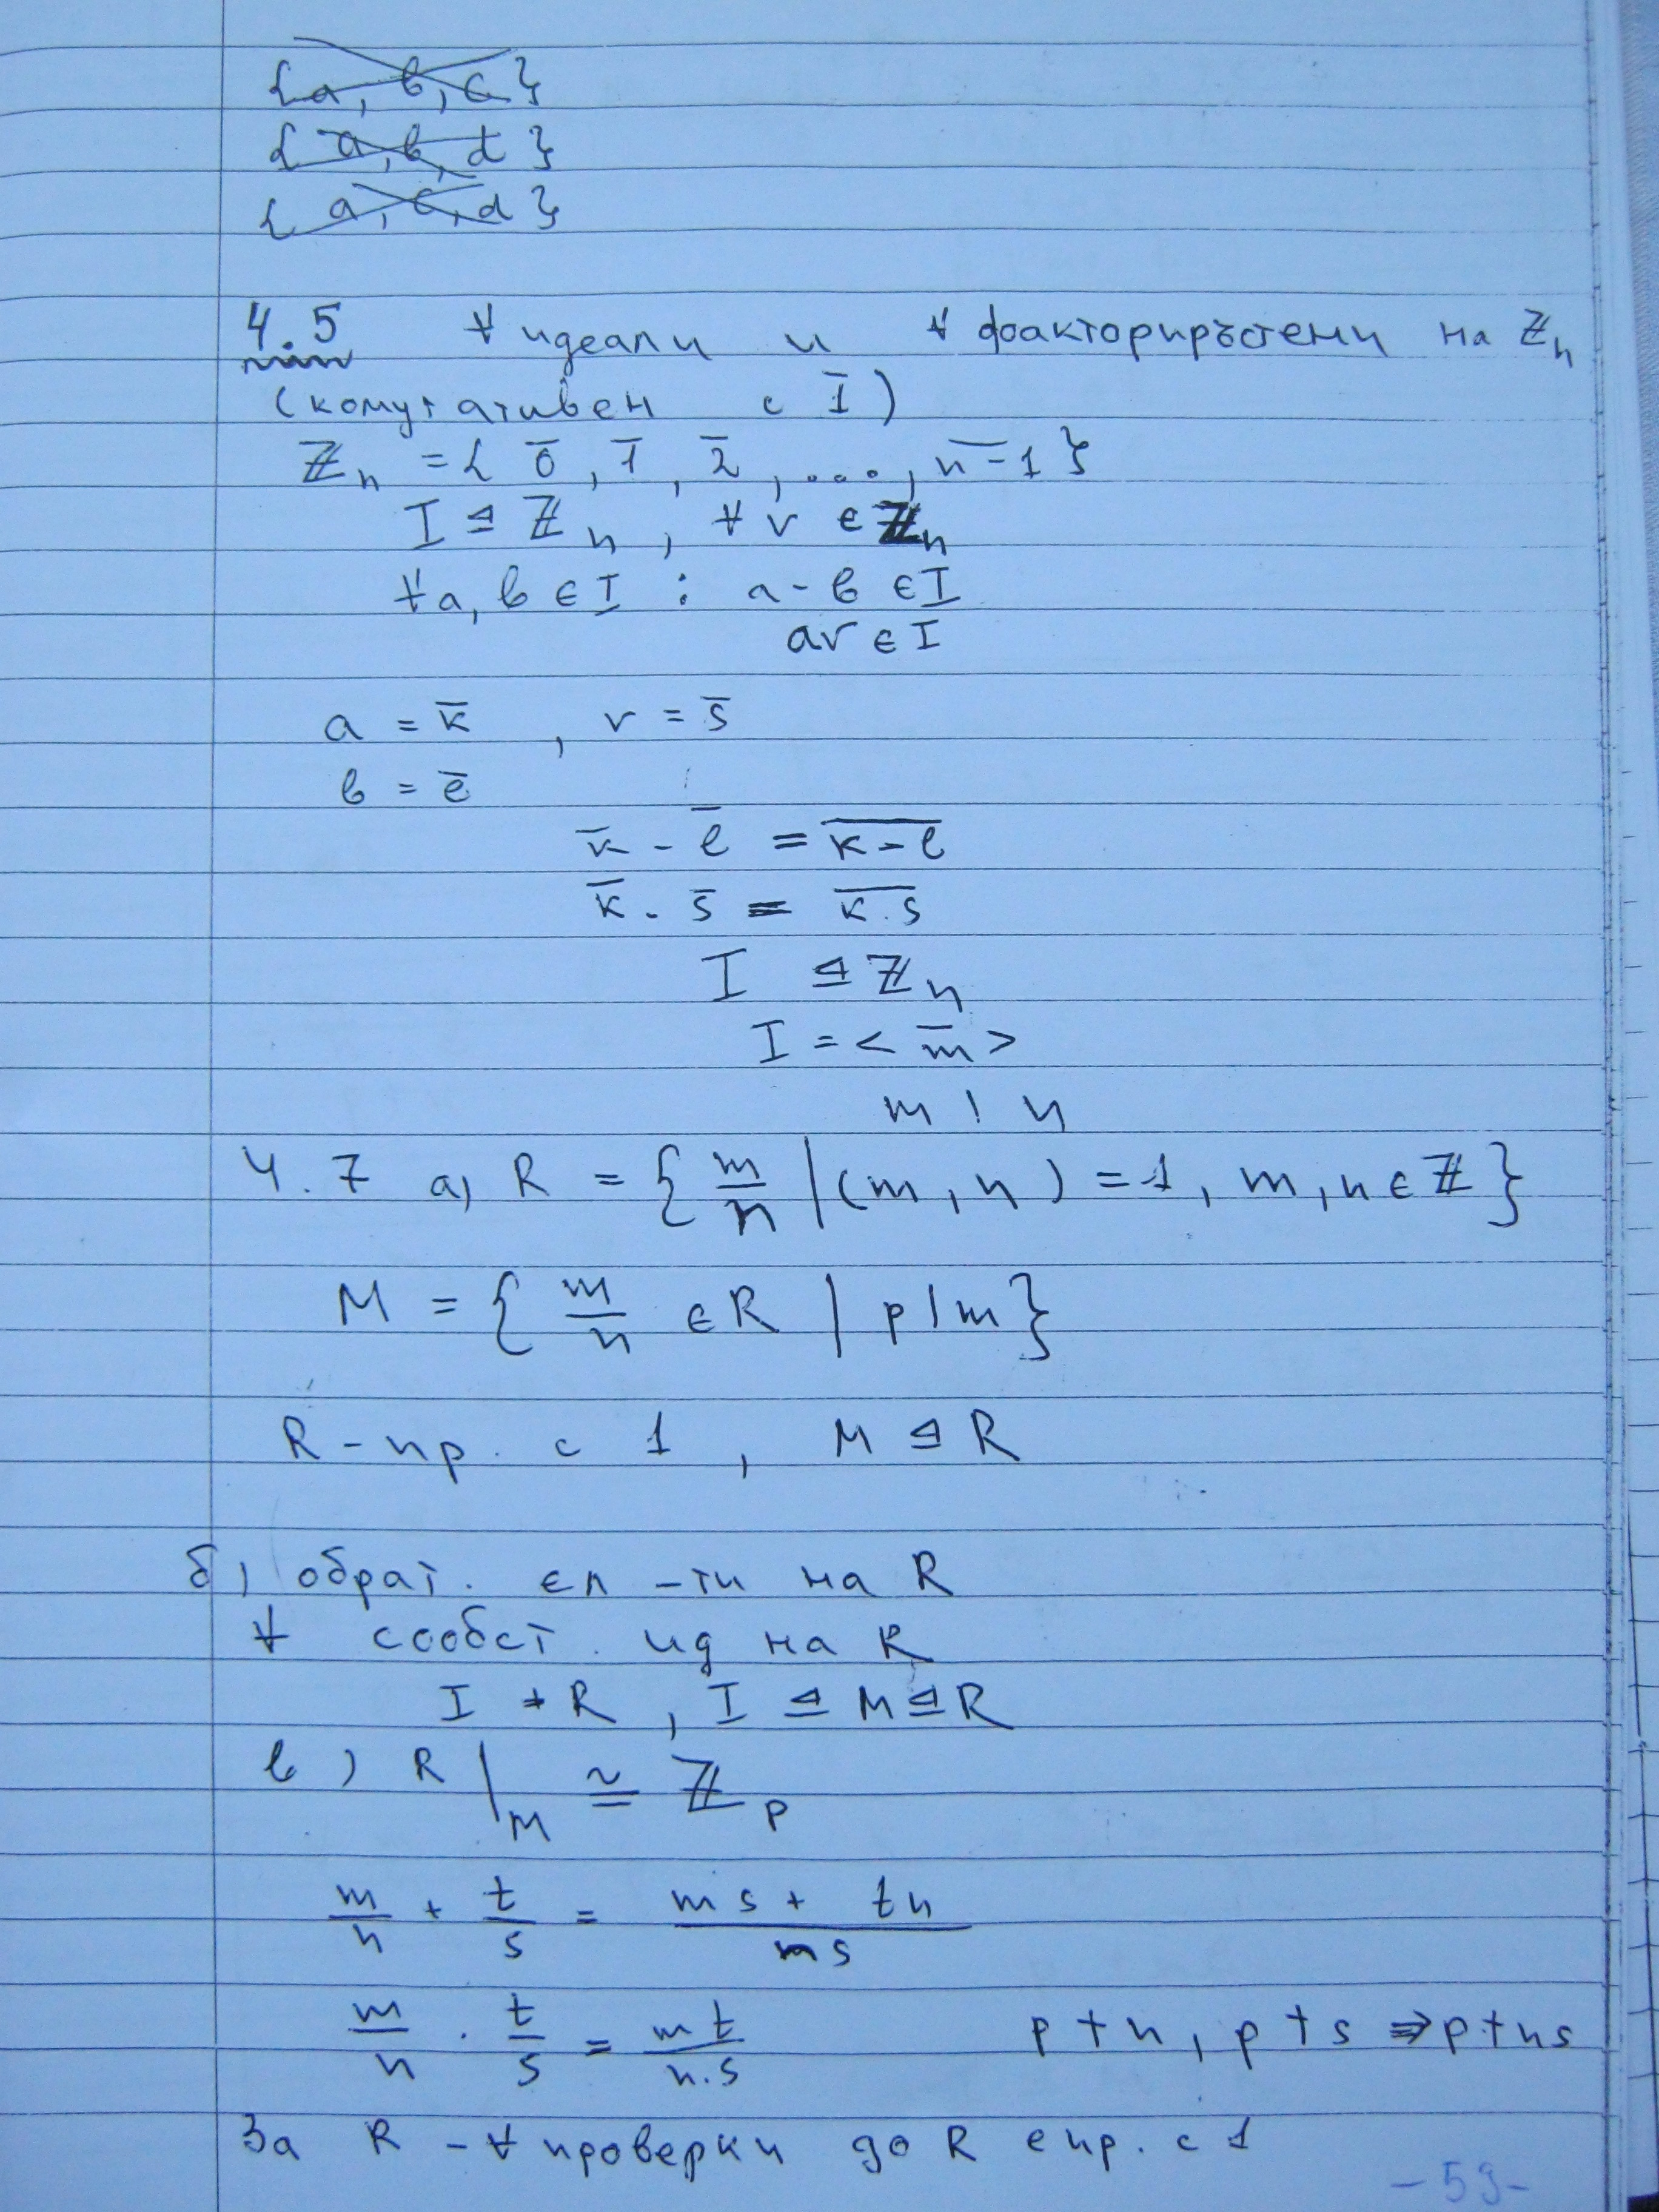 {a, b, c}
{a, b, d}
{a, c, d}
4.5 ∀ идеали и ∀ факторпръстени на ℤₙ
(комутативен с 1̅)
ℤₙ = { 0̅, 1̅, 2̅, ..., n̅-̅1̅ }
I ⊴ ℤₙ, ∀ r ∈ ℤₙ
∀a, b ∈ I : a - b ∈ I
ar ∈ I
a = k̅, r = s̅
b = l̅
k̅ - l̅ = k̅-̅l̅
k̅ . s̅ = k̅.̅s̅
I ⊴ ℤₙ
I = < m̅ >
m | n
4.7 а) R = { m/n | (m, n) = 1, m, n ∈ ℤ }
M = { m/n ∈ R | p | m }
R - пр. с 1, M ⊴ R
б) обрат. ел-ти на R
∀ сообст. ид на R
I ≠ R, I ⊴ M ⊴ R
в) R/M ≅ ℤₚ
m/n + t/s = ms + tn / ns
m/n . t/s = mt / n.s p ∤ n, p ∤ s ⇒ p ∤ ns
За R - ∀ проверки до R е пр. с 1
- 59 -